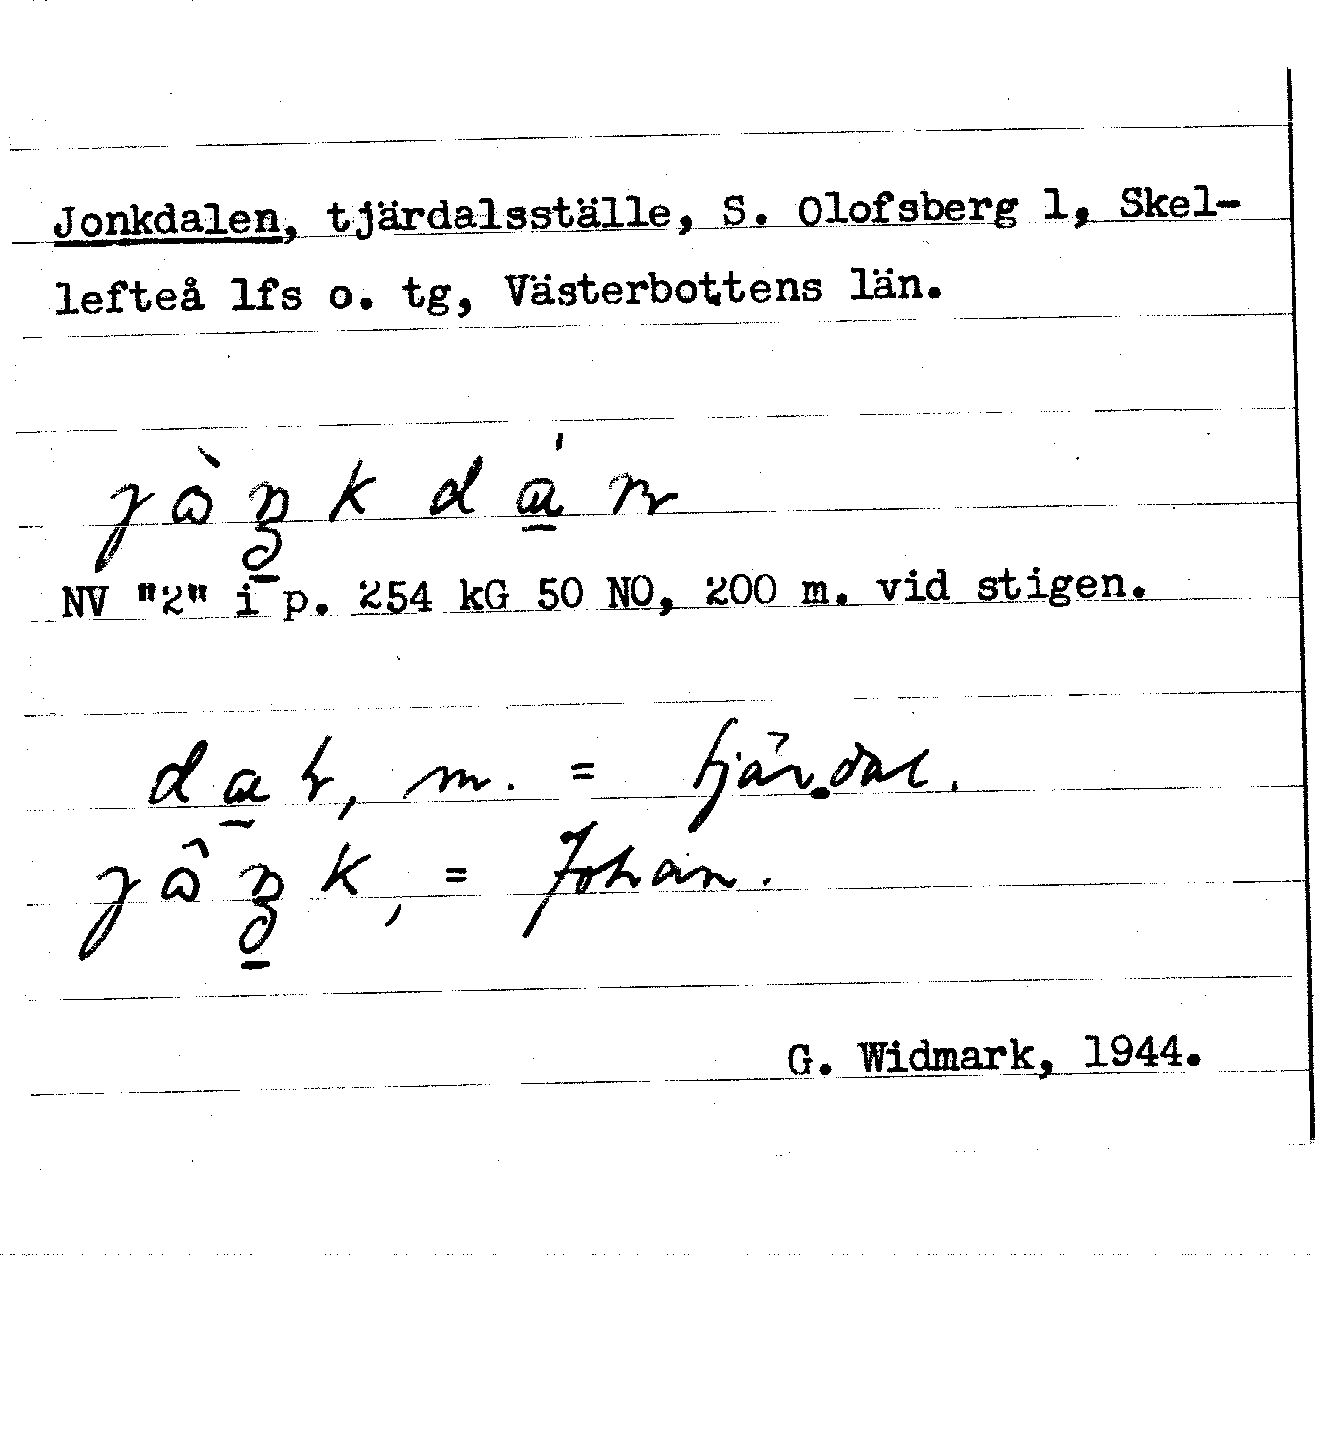 Jonkdalen, tjärdalsställe, S. Olofsberg 1, Skel-
lefteå lfs o. tg, Västerbottens län.
NV "2" i p. 254 kG 50 NO, 200 m. vid stigen.
m. = tjärdal.
= Johan.
G. Widmark, 1944.